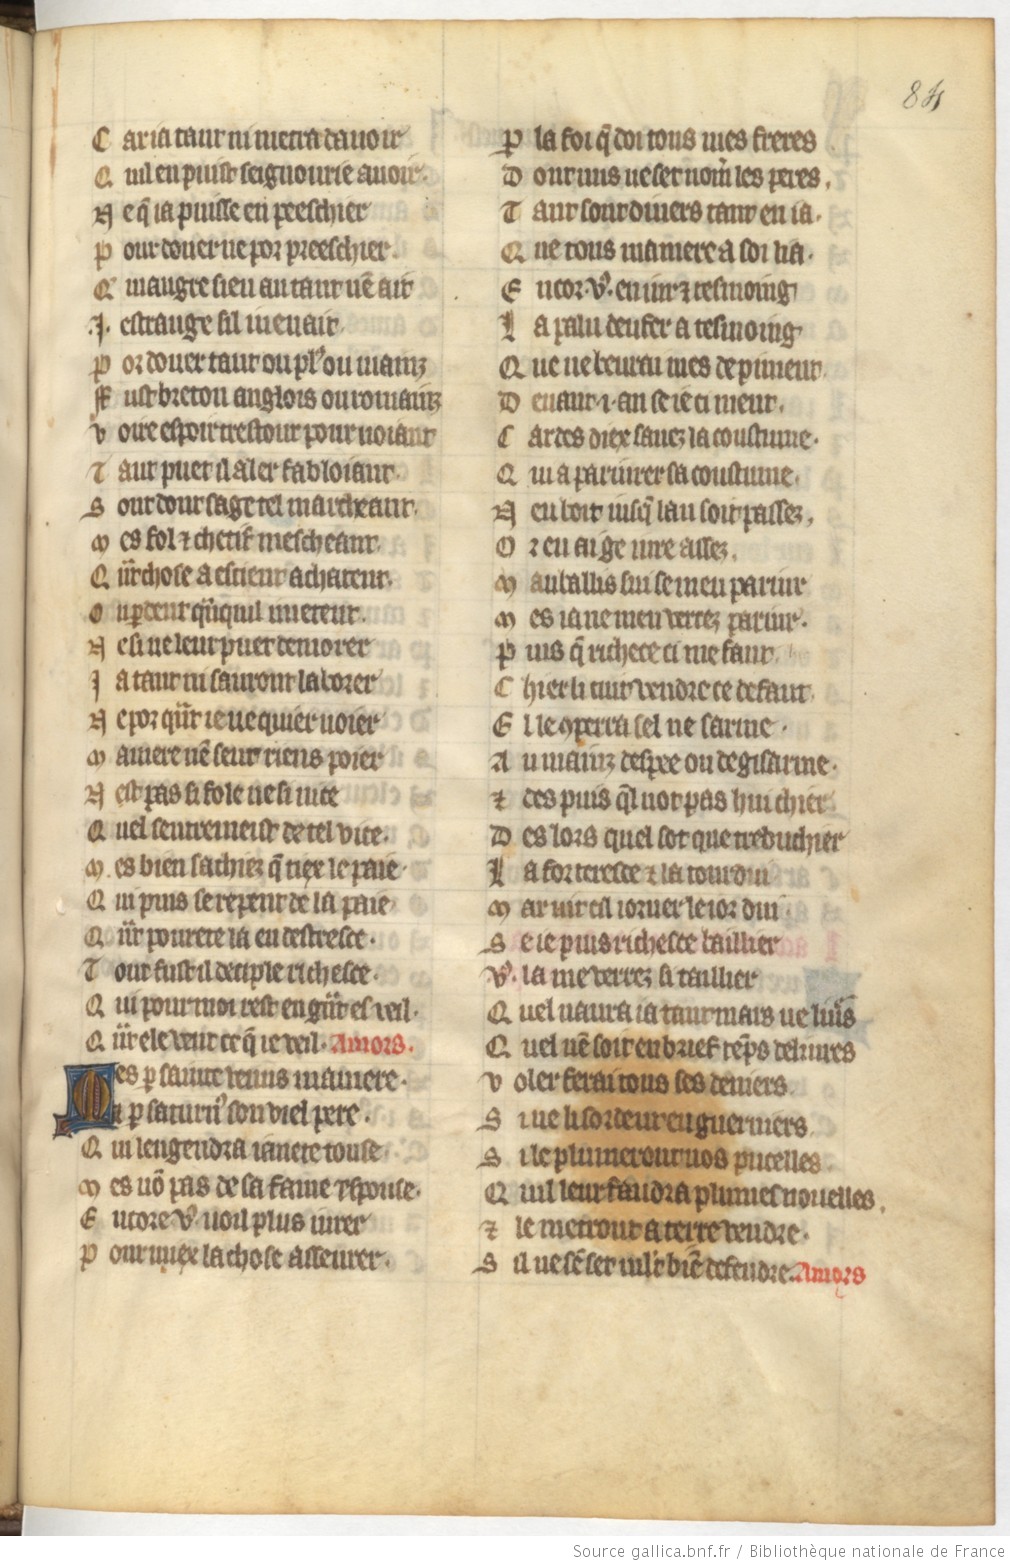 84
Car ia tant ni metra dauoir
Quil en puist seignourie auoir.
Ne q̃ ia puisse en preeschier
Pour doner ne por preeschier.
Qmaugre sien autant uẽ air
.I. estrange sil iuenait
Por doner tant ou pl9 ou mainz
Fust breton anglois ou romainz
Voire espoir trestout pour noiant
Tant puet il aler fabloiant.
Sont dont sage tel marcheant.
Mes fol ⁊ chetif mescheant.
Qñt chose a escient achatent.
Ou ꝑdent qñquil imetent.
Ne si ne leur puet demorer
Ja tant ni sauront laborer
Ne por qñt ie ne quier noier
Ma mere nẽ seut riens poier
Nest pas si fole ne si nice
Quel sentremeist de tel vice.
Mes bien sachiez q̃ tiex le paie
Qui puis se repent de la paie
Qñt pourete la en destresce.
Tout fust il deciple richesce.
Qui pour moi rest en grãt esveil.
Qñt ele veut ce q̃ ie veil. Amors.
Mes ꝑ sainte venus ma mere.
Et ꝑ saturn9 son viel pere.
Qui lengendra iancte touse
Mes nõ pas de sa fame espouse.
Encore v9 uoil plus iurer
Pour miex la chose asseurer.
P la foi q̃ doi tous mes freres
Dont nus ne set nom̃ les peres.
Tant sont diuers tant en ia.
Que tous ma mere a soi lia.
Encor. v9. en iur ⁊ tesmoing
La palu denfer a tesmoing
Que ne beurai mes de piment.
Deuant .i. an se ie ci ment.
Car des diex sauez la coustume.
Qui a pariurer sa coustume.
Nen boit iusq̃ lan soit passez.
Or en ai ge iure assez.
Maubaillis sui se men pariur
Mes ia ne men verrez pariur.
Puis q̃ richece ci me faut.
Chier li cuit vendre ce defaut.
El le ꝯperra sel ne sarme.
Au mainz despee ou de gisarme.
⁊ des puis q̃l not pas hui chier
Des lors quel sot que trebuchier
La forteresce ⁊ la tour dui
Mar uit esiorner le ior dui
Se ie puis richesce baillier
V9. la me verrez si taillier
Quel naura ia tant mars ne liur̃s
Quel nẽ soit en brief tẽps deliures
Voler ferai tous ses deniers.
Sine li sordent en guerniers.
Si le plumeront nos pucelles
Quil leur faudra plumes nouelles.
⁊ le metront a terre vendre.
Sil ne sẽ set ml't biẽ defendre. Amors
Source gallica.bnf.fr / Bibliothèque nationale de France